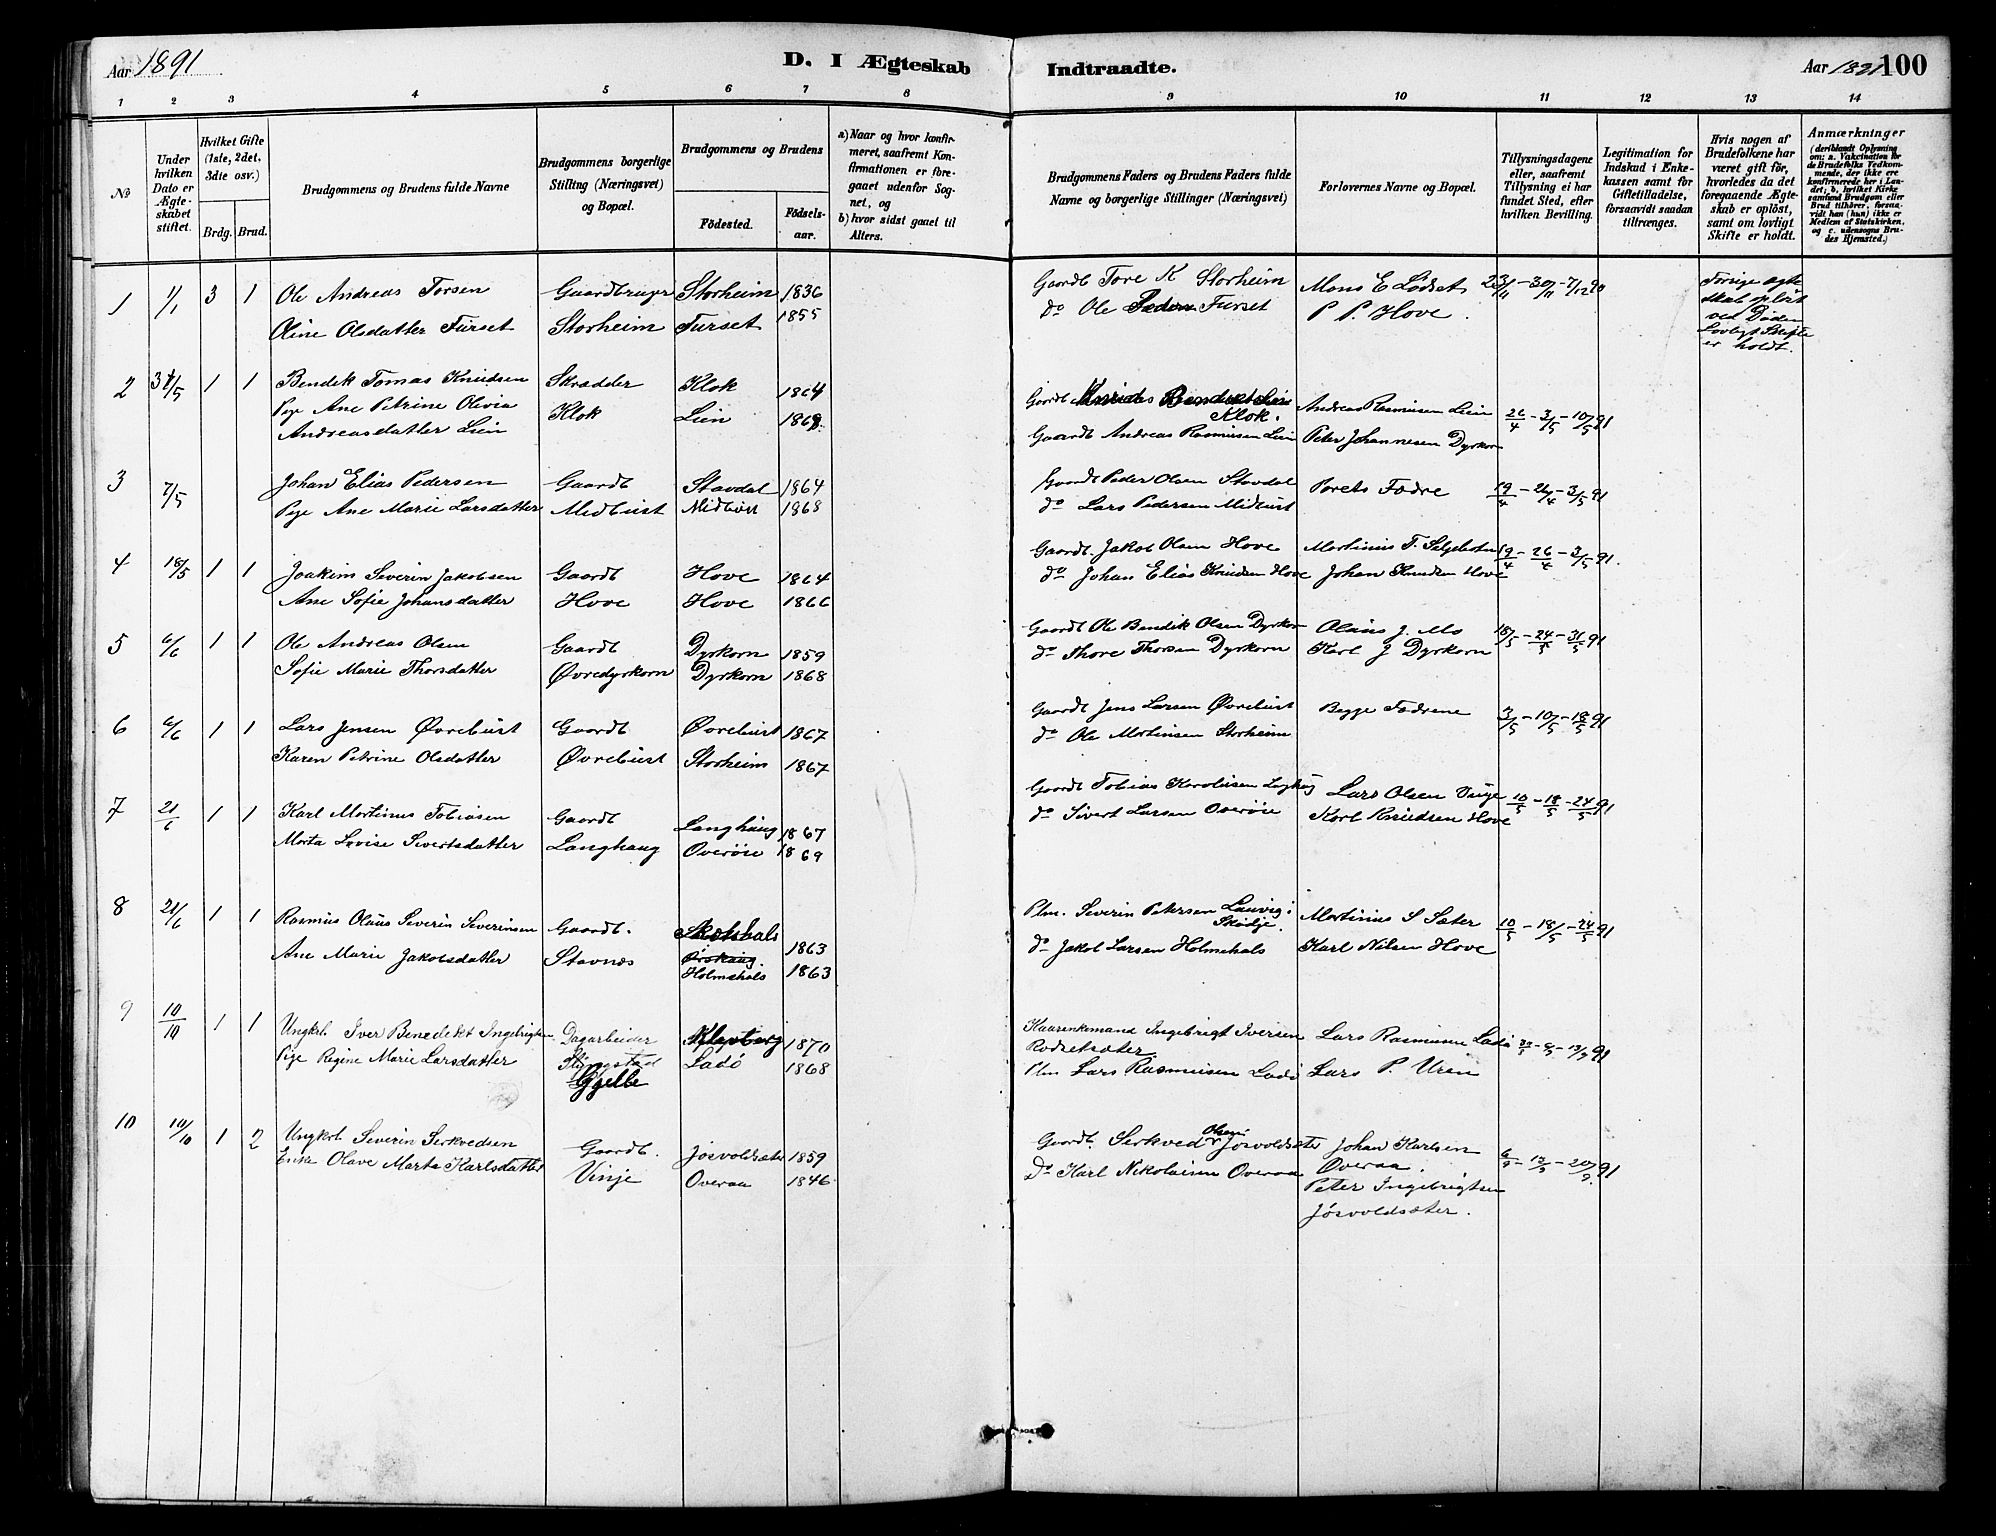 Aar 1891
D. I Ægteskab
Indtraadte.
Aar 1891
100
1 2 3 4 5 6 7 8 9 10 11 12 13 14
No
Under hvilken Dato er Ægteskabet stiftet.
Hvilket Gifte (1ste, 2det, 3die osv.)
Brdg. Brud.
Brudgommens og Brudens fulde Navne
Brudgommens borgerlige Stilling (Næringsvei) og Bopæl.
Brudgommens og Brudens
Fødested.
Fødselsaar.
a) Naar og hvor konfirmeret, saafremt Konfirmationen er foregaaet udenfor Sognet, og
b) hvor sidst gaaet til Alters.
Brudgommens Faders og Brudens Faders fulde Navne og borgerlige Stillinger (Næringsvei)
Forlovernes Navne og Bopæl.
Tillysningsdagene eller, saafremt Tillysning ei har fundet Sted, efter hvilken Bevilling.
Legitimation for Indskud i Enkekassen samt for Giftetilladelse, forsaavidt saadan tiltrænges.
Hvis nogen af Brudefolkene har været gift før, hvorledes da det foregaaende Ægteskab er opløst, samt om lovligt Skifte er holdt.
Anmærkninger (deriblandt Oplysning om: a. Vakcination for de Brudefolks Vedkommende, der ikke ere konfirmerede her i Landet; b. hvilket Kirkesamfund Brudgom eller Brud tilhører, forsaavidt han (hun) ikke er Medlem af Statskirken, og c. udensogns Brudes Hjemsted.)
1 1/1 3 1 Ole Andreas Torsen Gaardbruger Storheim 1836 Gaardb Tore K Storheim Mons E Lødset 23/11 - 30/11 - 7/12 90 Forrige Ægte
Oline Olsdatter Furset Storheim Furset 1855 do Ole Furset P P. Hove. skab opløst
ved Døden
Lovligt Skifte
er holdt.
2 31/5 1 1 Bendik Tomas Knudsen Skrædder Klok 1864 Gaardb Klok. Andreas Rasmussen Lien 26/4 - 3/5 - 10/5 91
Pige Ane Petrine Olivia Klok Lien 1868
Andreasdatter Lien Gaardb Andreas Rasmusen Lien Peter Johannesen Dyrkorn
3 7/5 Johan Elias Pedersen Gaardb Stavdal 1864 Gaardb Peder Olsen Stavdal Parets Fædre 19/4 - 26/4 - 3/5 91
Pige Ane Marie Larsdatter Midtbust Midtbust 1868 do Lars Pedersen Midtbust
4 18/5 1 1 Joakim Severin Jakobsen Gaardb Hove 1864 Gaardb. Jakob Olsen Hove Martinus T. Seljebotn 19/4 - 26/4 - 3/5 91.
Ane Sofie Johansdatter Hove Hove 1866 do Johan Elias Knudsen Hove Johan Knudsen Hove
5 6/6 1 1 Ole Andreas Olsen Gaardb Dyrkorn 1859 Gaardb Ole Bendik Olsen Dyrkor Olaus J. Mo 18/5 - 24/5 - 31/5 91
Sofie Marie Thorsdatter Øvredyrkorn Dyrkorn 1868 do Thore Thorsen Dyrkorn Karl J Dyrkorn
6 6/6 1 1 Lars Jensen Øvrebust Gaardb Øvrebust 1867 Gaardb Jens Larsen Øvrebust Begge Fædrene 3/5 - 10/5 - 18/5 91
Karen Petrine Olsdatter Øvrebust Storheim 1867 do Ole Martinsen Storheim
7 21/6 1 1 Karl Martinus Tobiasen Gaardb Langhaug 1867 Gaardb Tobias Karolusen Lars Olsen Vinje 10/5 - 18/5 - 24/5 91
Marta Lovise Sivertsdatter Langhaug Overøie 1869 do Sivert Larsen Overøie Karl Knudsen Hove
8 21/6 1 1 Rasmus Olaus Severin Severinsen Gaardb. 1863 Plm. Severin Petersen Lauvig i Skodje. Martinus S Sæter 10/5 - 18/5 - 24/5 91
Ane Marie Jakobsdatter Stavnæs Ørskaug Holmehals 1863 do Jakob Larsen Holmehals Karl Nilsen Hove
9 10/10 1 1 Ungkrl. Iver Benedekt Ingebrigtsen Dagarbeider 1870 Kaarenkemand Ingebrigt Iversen Rødsetsæter Lars Rasmusen Ladø 91
Pige Regine Marie Larsdatter Gjelbe Ladø 1868 Plm Lars Rasmusen Ladø Lars P. Uren
10 10/10 1 2 Ungkrl Severin Serkvedsen Gaardb. Jøsvoldsæte 1859 Gaardb. Serkved Olsen Jøsvoldsæte Johan Karlsen 6/9 - 13/9 - 20/9 91
Enke Olave Marta Karlsdatter Vinje Overaa 1846 Do Karl Nikolaisen Overaa Overaa.
Peter Ingebrigtsen
Jøsvoldsæter.